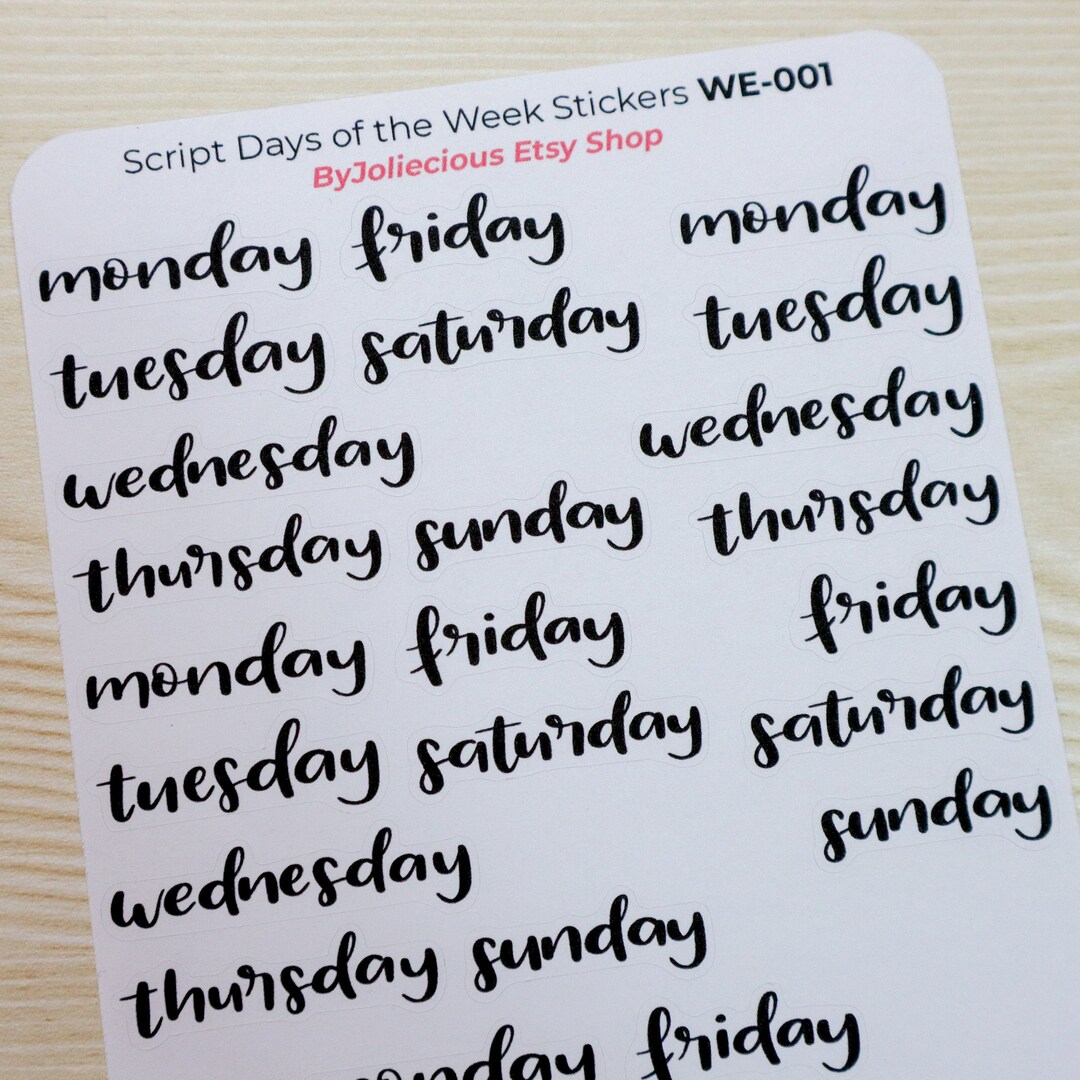 Script Days of the Week Stickers WE-001
ByJoliecious Etsy Shop
monday friday monday
tuesday saturday tuesday
wednesday wednesday
thursday sunday thursday
monday friday friday
tuesday saturday saturday
sunday
wednesday
thursday sunday
monday friday